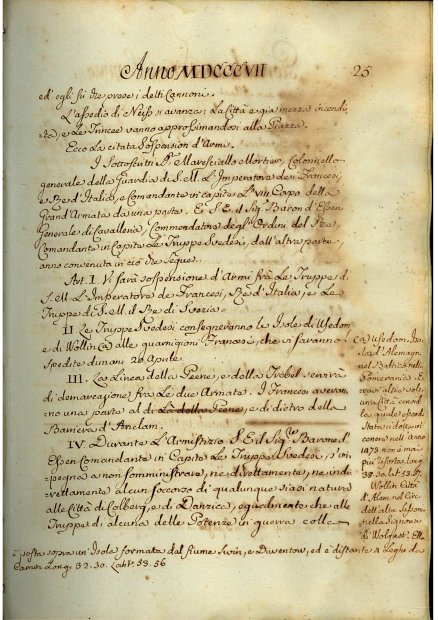 Anno MDCCCVII 25
ed' egli fù tre prove i delti Cannoni.
L'assedio di Neiss si avanza: La Città è già mezza incendi
ta, e Le Trincee vanno approssimandosi alla Piazza.
Ecco La citata Sospension d'Armi.
I Sottoscritti Sr. Maresciallo Mortier, Colonnello
generale della Guardia di S. M. L'Imperatore de' Francesi,
e Re d'Italia, e Comandante in capite L'VIII Capo della
Grand'Armata da una parte. E S. E. il Sig. Baron d'Essen
Generale di Cavalleria, Commendatore degl'Ordini del Re,
Comandante in Capite Le Truppe Svedesi, dall'altra parte,
anno convenuto in ciò che segue.
Art. I. Vi sarà sospensione d'Armi frà Le Truppe di
S. M. L'Imperatore de' Francesi, Re d'Italia, e Le
Truppe di S. M. il Re di Svezia.
II Le Truppe Svedesi consegneranno le Isole di Usedom
e di Wollin (a) alle guarnigioni Francesi, che vi saranno
spedite dimani 20 Aprile.
III. La Linea della Peene, e della Trebel servirà
di demarcazione fra Le due Armate. I Francesi averan-
no una parte al di Là della Peene, e di dietro della
Barriera d'Anclam.
IV. Durante L'Armistizio S. E. il Sig. Barone d'
Essen Comandante in Capite Le Truppe Svedesi, s'im
pegna a non somministrare, ne direttamente, ne indi
rettamente alcun soccorso di qualunque siasi natura
alle Città di Colberg, e di Danzica, egualmente che alle
Truppe di alcuna delle Potenze in guerra colla
(a) Usedom. Iso-
la d'Alemagn.
nel Baltic. nella
Pomerania.
una Città cmod
la quale espor
stata
cenere nell'anno
1473 non a mai
più risorta. Long.
38. Lat. 53.57
Wollin Città
d'Alem. nel Circ.
dell'alta Sasson.
nella Signoria
di Wolgast. Ell.
è posta sopra un'Isola formata dal fiume Swin, e Diwenow, ed è distante 2 Leghe da
Camin Long. 32.30. Lat. 53.56